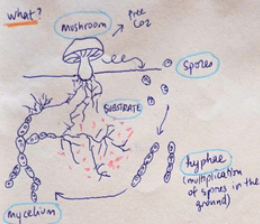 What?
mushroom
free
CO2
spores
SUBSTRATE
hyphae
(multiplication
of spores in the
ground)
mycelium